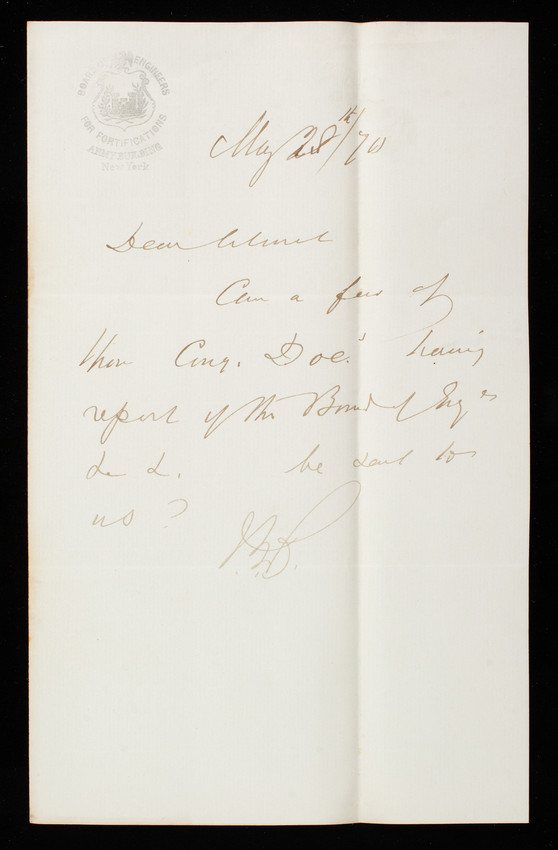 BOARD OF ENGINEERS
FOR FORTIFICATIONS
ARMY BUILDING
New York
May 28th/70
Dear Colonel
Can a few of
those Cong. Docs. having
report of the Board of Engrs
be sent to
us?